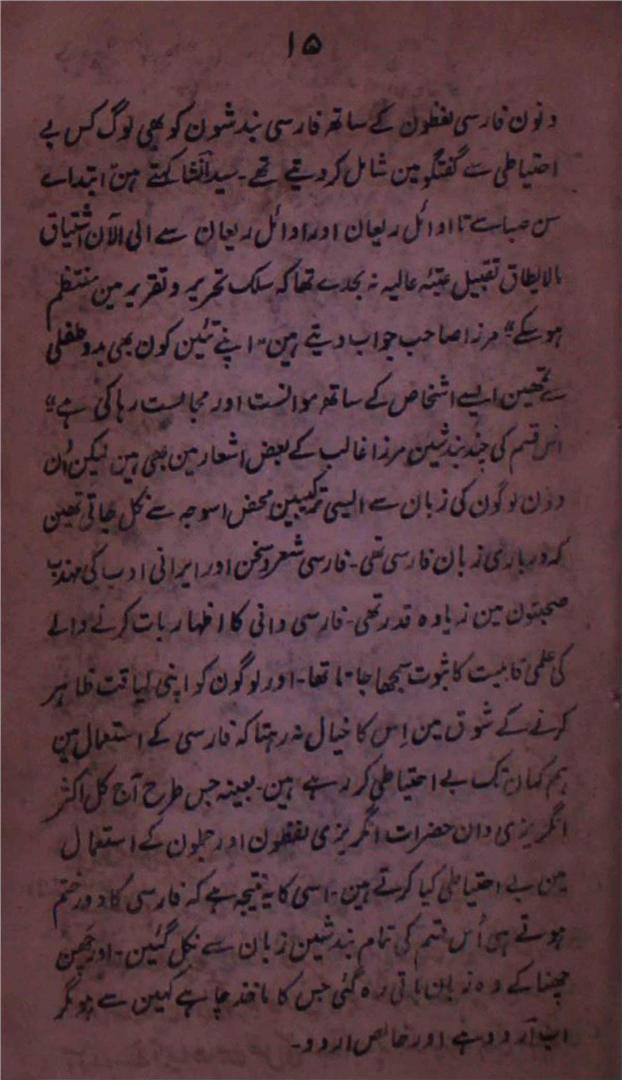 ۱۵
دنون فارسی لفظون کے ساتھ فارسی بندشون کو بھی لوگ کس بے
احتیاطی سے گفتگو مین شامل کر دیتے تھے۔ سید انشا کہتے ہین "ابتداے
سن صبا سے تا اوائل ریعان اور اوائل ریعان سے الی الآن اشتیاق
مالایطاق تقبیل عتبۂ عالیہ نہ بحدے تھا کہ سلک تحریر و تقریر مین منتظم
ہو سکے" مرزا صاحب جواب دیتے ہین "اپنے تئین کون بھی بدو طفلی
سے تمھین ایسے اشخاص کے ساتھ موانست اور مجالست رہا کی ہے"
اس قسم کی چند بندشین مرزا غالب کے بعض اشعار مین بھی ہین لیکن اُن
دنون لوگون کی زبان سے ایسی ترکیبین محض اسوجہ سے نکل جاتی تھین
کہ درباری زبان فارسی تھی۔ فارسی شعر و سخن اور ایرانی ادب کی مہذب
صحبتون مین زیادہ قدر تھی۔ فارسی دانی کا اظہار بات کرنے والے
کی علمی قابلیت کا ثبوت سمجھا جاتا تھا۔ اور لوگون کو اپنی لیاقت ظاہر
کرنے کے شوق مین اِس کا خیال نہ رہتا کہ فارسی کے استعمال مین
ہم کہان تک بے احتیاطی کر رہے ہین۔ بعینہ جس طرح آج کل اکثر
انگریزی دان حضرات انگریزی لفظون اور جملون کے استعمال
مین بے احتیاطی کیا کرتے ہین۔ اسی کا یہ نتیجہ ہے کہ فارسی کا دور ختم
ہوتے ہی اُس قسم کی تمام بندشین زبان سے نکل گئین۔ اور چھن
چھنا کے وہ زبان باقی رہ گئی جس کا ماخذ چاہے کہین سے ہو مگر
اب اُردو ہے اور خالص اردو۔